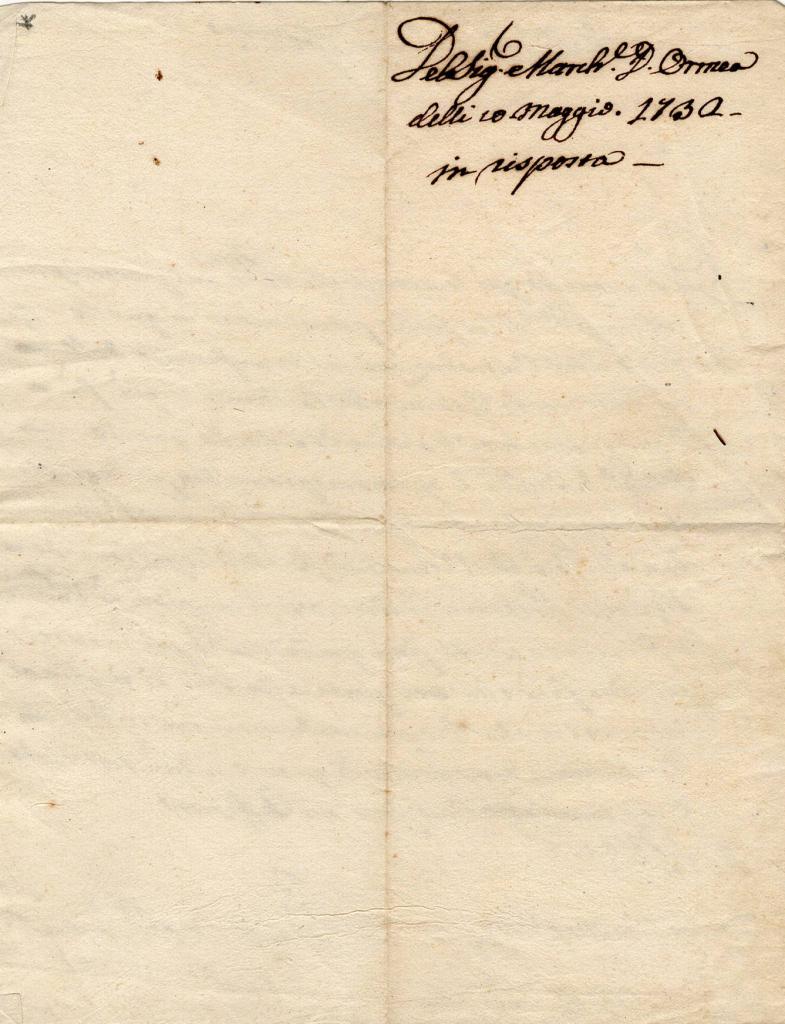 Del Sig.r March.e D. Ormea
delli 10 Maggio. 1732 -
in risposta -